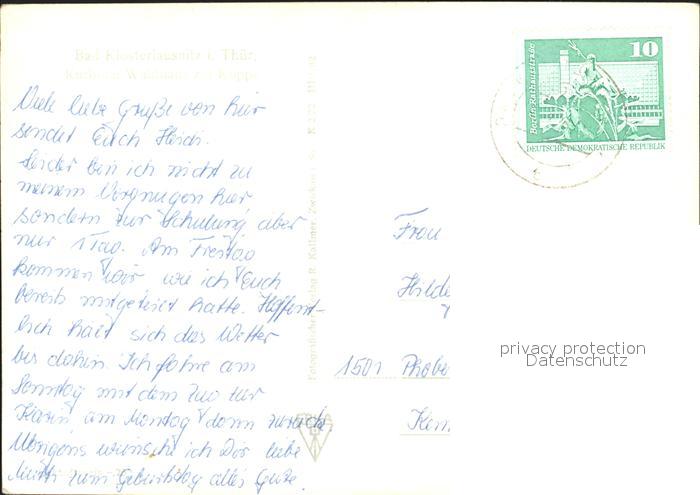 Bad Klosterlausnitz i. Thür.
Kurheim Waldhaus zur Köppe
Viele liebe Grüße von hier
sendet Euch Heidi.
Leider bin ich nicht zu
meinem Vergnügen hier
sondern zur Schulung aber
nur 1 Tag. Am Freitag
kommen wir wie ich Euch
bereits mitgeteilt hatte. Hoffent-
lich hält sich das Wetter
bis dahin. Ich fahre am
Sonntag mit dem Zug
Karin, am Montag dann zurück.
Übrigens wünsche ich Dir liebe
Mutti zum Geburtstag alles Gute.
Fotografischer Verlag R. Kallmer, Zwickau i. Sa.
10
Berlin-Rathausstraße
DEUTSCHE DEMOKRATISCHE REPUBLIK
Frau
Hilde
1501
privacy protection
Datenschutz